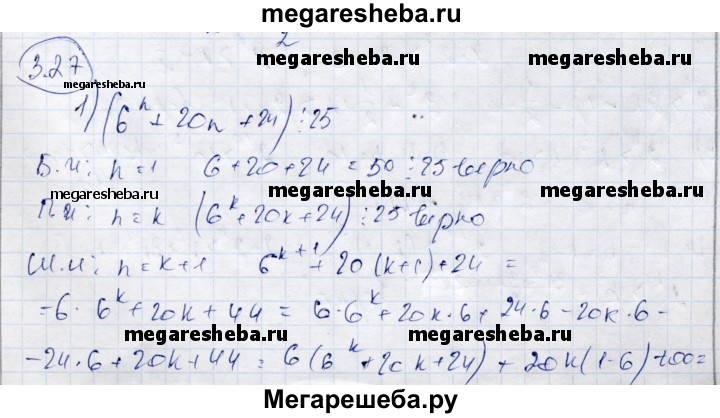 megaresheba.ru
2
3.27
megaresheba.ru
megaresheba.ru
1) (6^n + 20n + 24) ⋮ 25
Б.и: n=1 6+20+24 = 50 ⋮ 25 верно
megaresheba.ru megaresheba.ru
П.и: n=k (6^k + 20k + 24) ⋮ 25 верно
Ш.и: n=k+1 6^{k+1} + 20(k+1) + 24 =
= 6 · 6^k + 20k + 44 = 6·6^k + 20k·6 + 24·6 - 20k·6 -
megaresheba.ru megaresheba.ru
- 24·6 + 20k + 44 = 6(6^k + 20k + 24) + 20k(1-6) - 100 =
Мегарешеба.ру